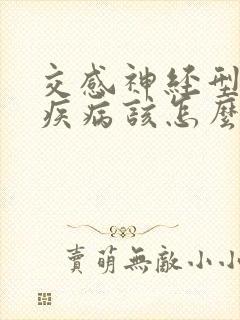 交感神经型
疾病該怎麼
賣萌無敵小小